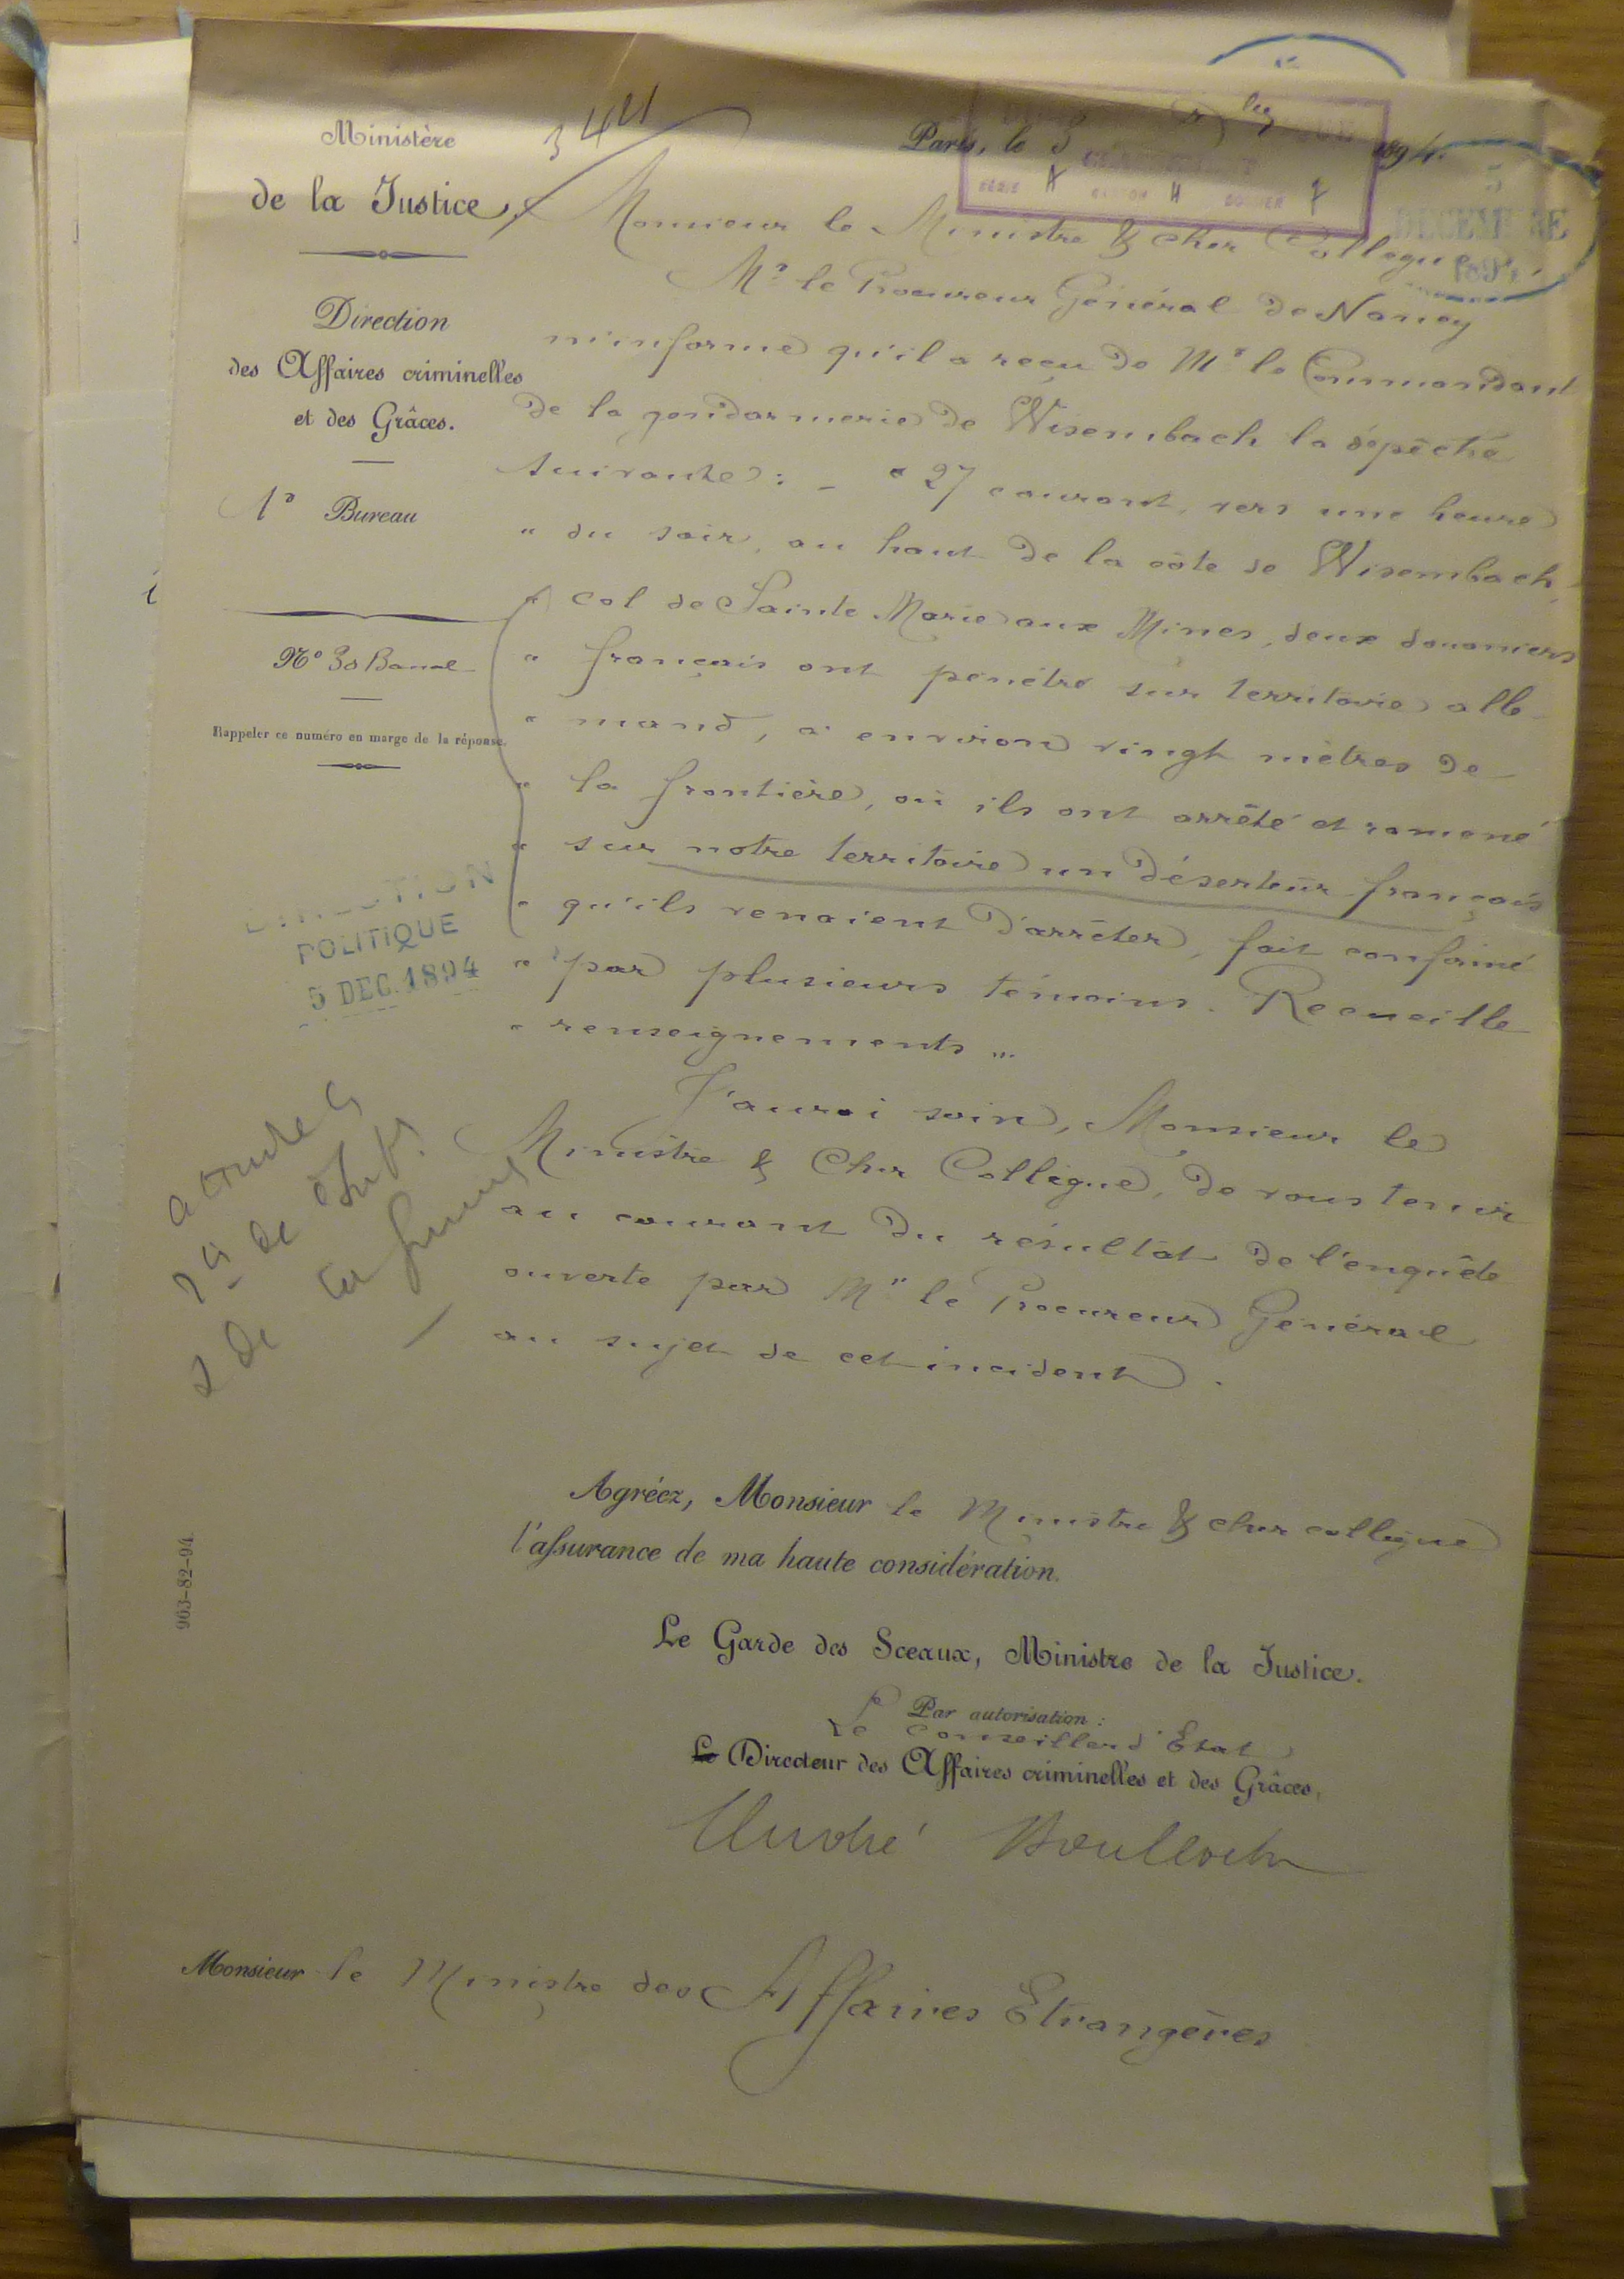 Ministère
de la Justice.
Direction
des Affaires criminelles
et des Grâces.
1º Bureau
Nº 30 Banal
Rappeler ce numéro en marge de la réponse.
DIRECTION
POLITIQUE
5 DEC. 1894
963-82-94
Paris, le 3 1894.
SÉRIE A CARTON 4 DOSSIER 7
5
DECEMBRE
1894
Monsieur le Ministre & cher Collègue,
Mr le Procureur Général de Nancy
m'informe qu'il a reçu de Mr le Commandant
de la gendarmerie de Wisembach la dépêche
suivante : – " 27 courant, vers une heure
" du soir, au haut de la côte de Wisembach,
" col de Sainte Marie aux Mines, deux douaniers
" français ont pénétré sur territoire alle-
" mand, à environ vingt mètres de
" la frontière, où ils ont arrêté et ramené
" sur notre territoire un déserteur français
" qu'ils venaient d'arrêter, fait confirmé
" par plusieurs témoins. Recueille
" renseignements ".
J'aurai soin, Monsieur le
Ministre & Cher Collègue, de vous tenir
au courant du résultat de l'enquête
ouverte par Mr le Procureur Général
au sujet de cet incident.
Agréez, Monsieur le Ministre & cher collègue
l'assurance de ma haute considération.
Le Garde des Sceaux, Ministre de la Justice.
Par autorisation :
Le Conseiller d'État
Le Directeur des Affaires criminelles et des Grâces,
André Boulloche
Monsieur le Ministre des Affaires Etrangères